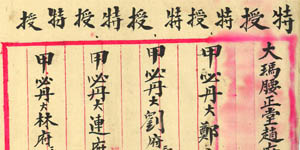 特授特授特授特授特授
大瑪腰正堂趙府
甲必丹大鄭
甲必丹大劉府
甲必丹大連府
甲必丹大林府